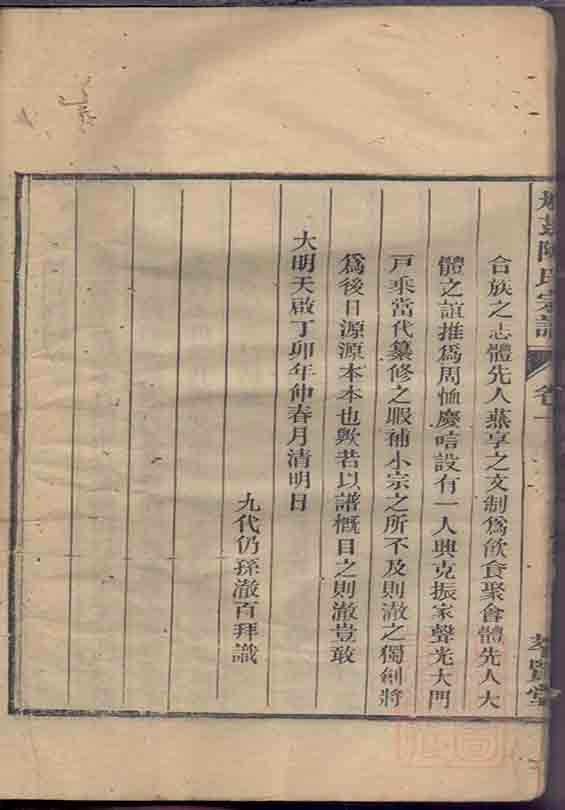 陳氏宗譜
卷一
合族之志體先人燕享之文制爲飮食聚會體先人大
體之誼推爲周恤慶唁設有一人興克振家聲光大門
戸乘當代纂修之暇補小宗之所不及則澈之獨創將
爲後日源源本本也歟若以譜槪目之則澈豈敢
大明天啟丁卯年仲春月清明日
九代仍孫澈百拜識
賢堂